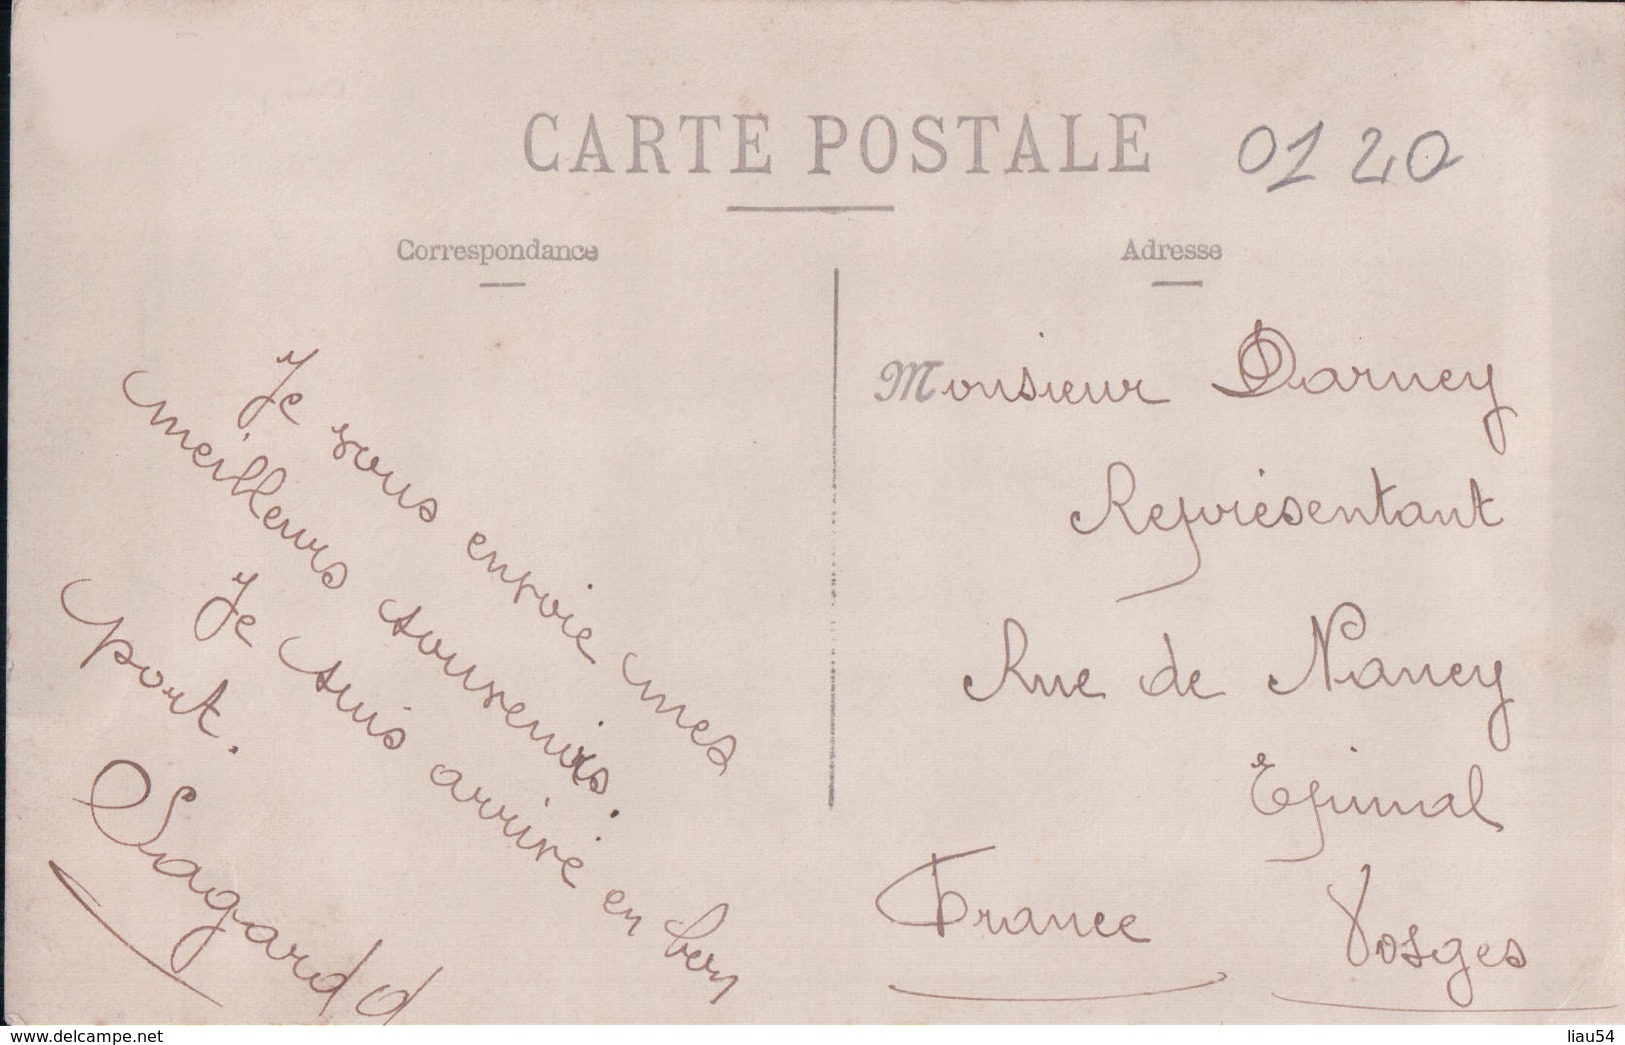 CARTE POSTALE
01 20
Correspondance
Adresse
Je vous envoie mes
meilleurs souvenirs.
Je suis arrivé en bon
port.
Sagard
Monsieur Darney
Représentant
Rue de Nancy
Epinal
France Vosges
www.delcampe.net
liau54